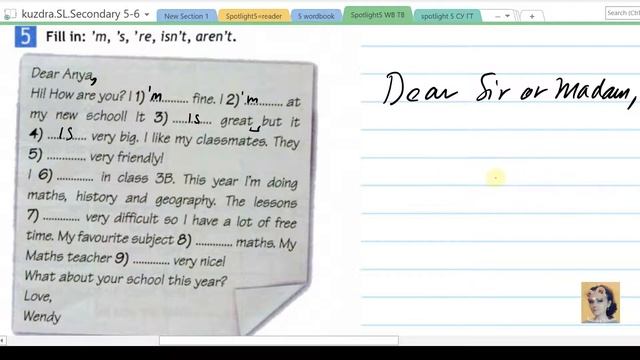 kuzdra.SL.Secondary 5-6
New Section 1
Spotlight5=reader
5 wordbook
Spotlight5 WB TB
spotlight 5 СУ ГТ
Search (Ctrl
5 Fill in: 'm, 's, 're, isn't, aren't.
Dear Anya,
Hi! How are you? I 1) 'm......... fine. I 2) 'm........ at
my new school! It 3) ....is..... great but it
4) ...is..... very big. I like my classmates. They
5) ............. very friendly!
I 6) ............. in class 3B. This year I'm doing
maths, history and geography. The lessons
7) ............. very difficult so I have a lot of free
time. My favourite subject 8) ............. maths. My
Maths teacher 9) ............. very nice!
What about your school this year?
Love,
Wendy
Dear Sir or Madam,